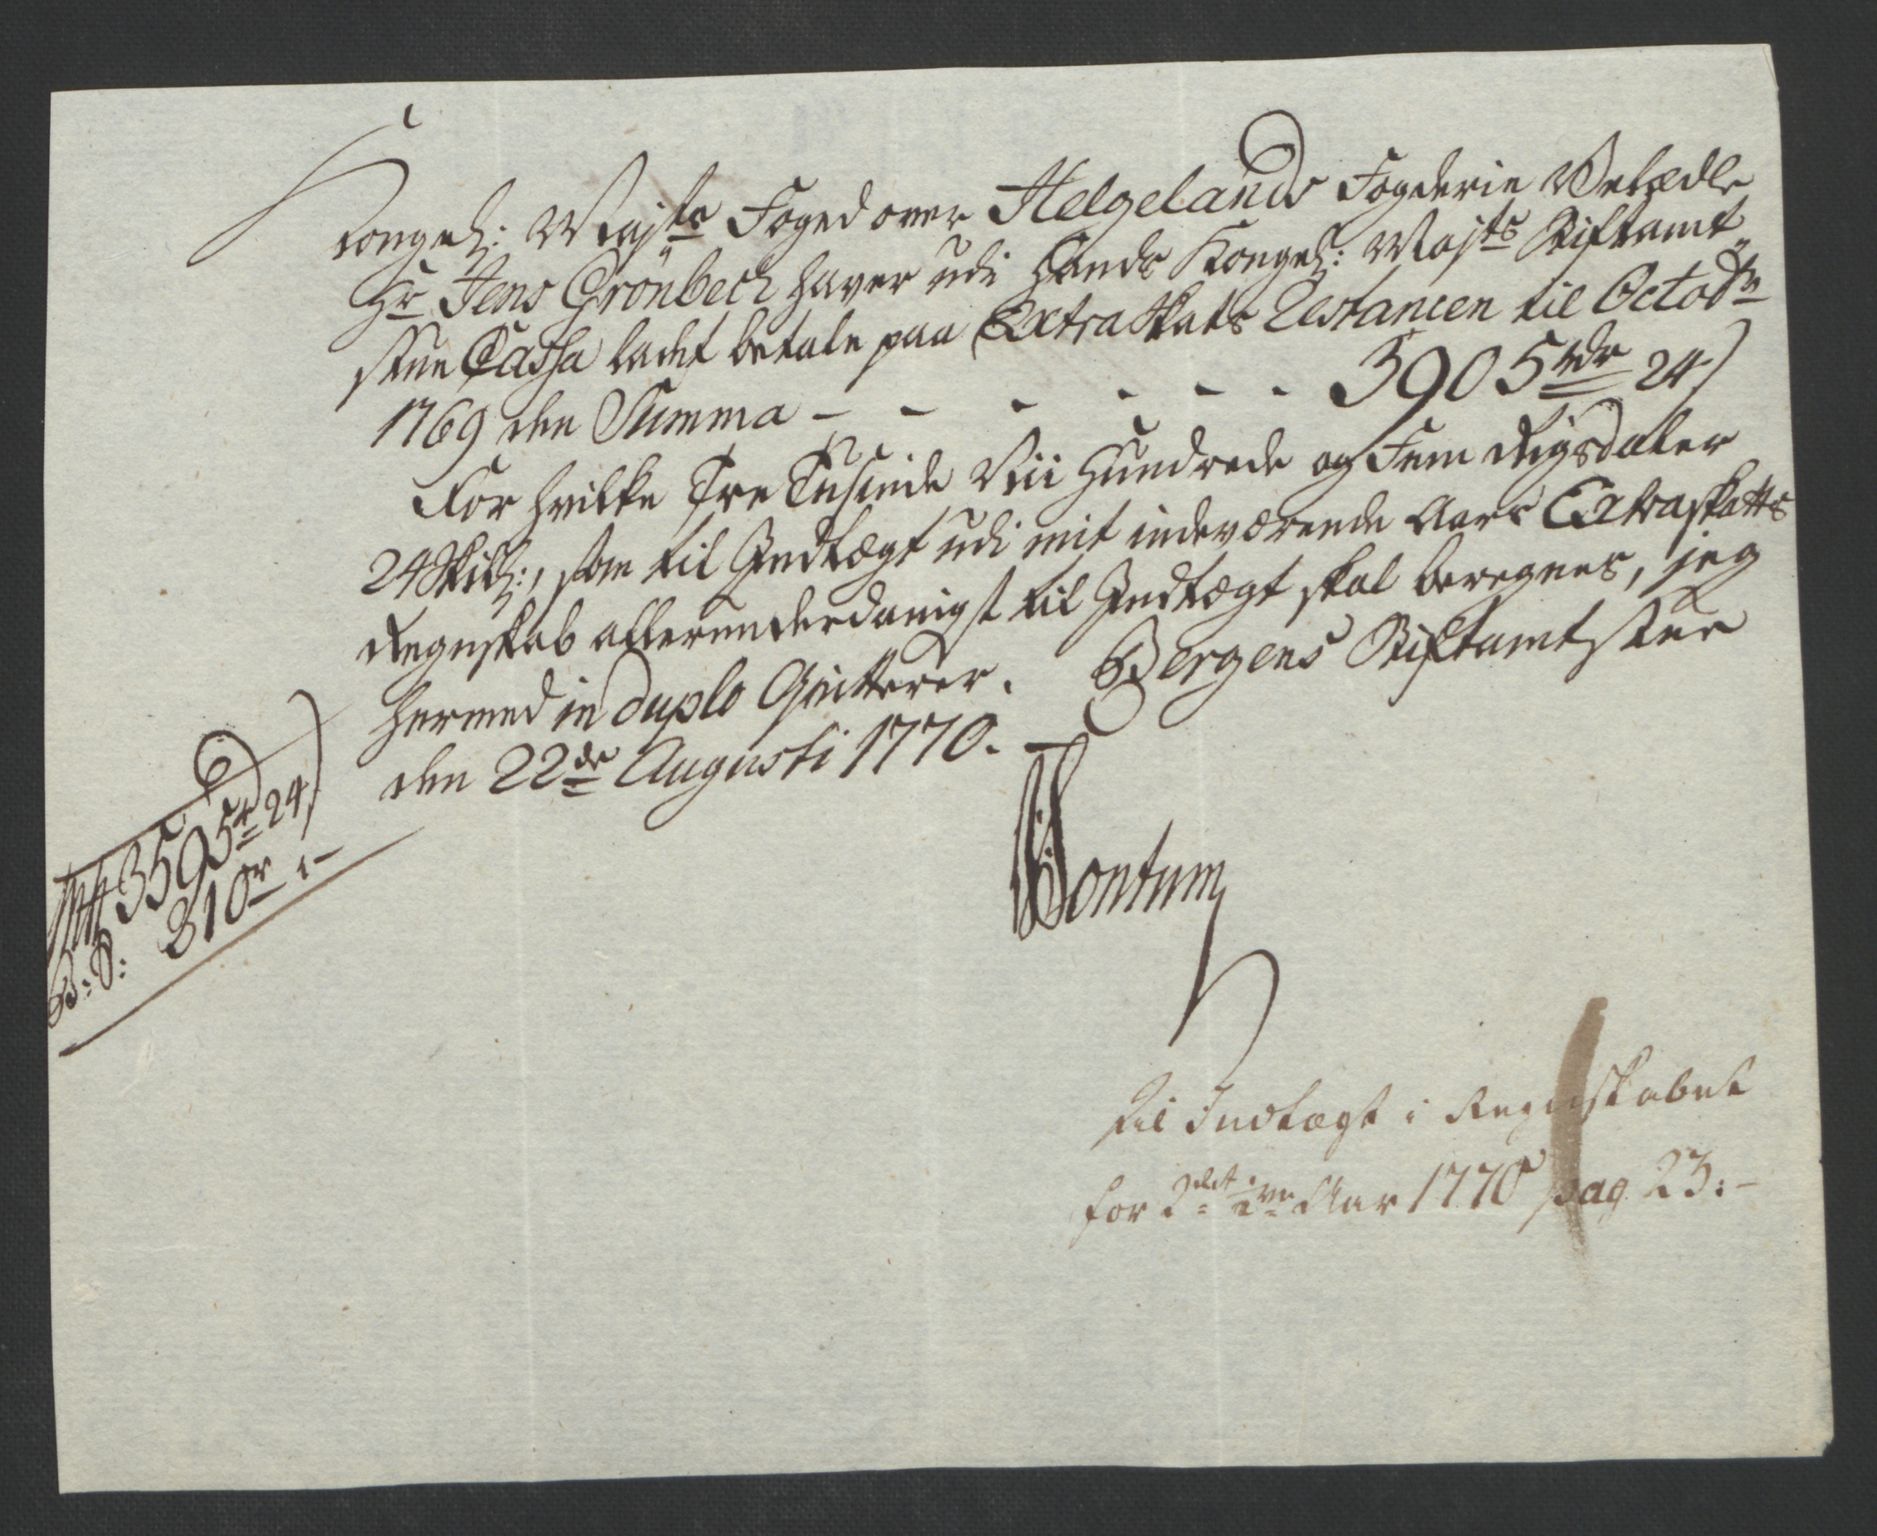 Kongel: Mayts Foged over Helgelands Fogderie Velædle
Hr Jens Grönbech haver udi Hands Kongel: Mayts Stiftamt
stue Cassa ladet betale paa Extra Skats Restancen til Octobr
1769 den Summa - - - - - - - 3905 rdr 24 s
For hvilke Tre Tusinde Nii Hundrede og Fem Rigsdaler
24 Skill:, som til Indtægt udi mit indeværende Aars Extraskatts
Regnskab allerunderdanigst til Indtægt skal beregnes, jeg
hermed in duplo Qvitterer. Bergens Stiftamtstue
den 22de Augusti 1770.
3595 r 24 s
B: S: 310 r "-
Wontum
til Indtægt i Regnskabet
for Aar 1770 pag 23:-